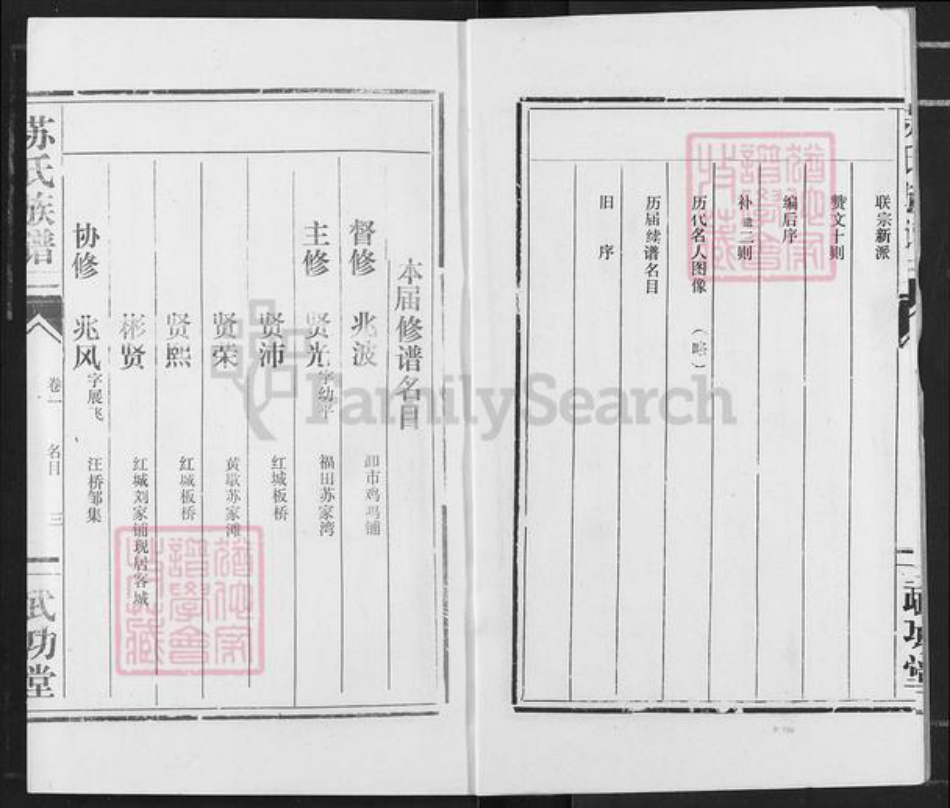 联宗新派
赞文十则
编后序
补遗二则
历代名人图像（略）
历届续谱名目
旧序
武功堂
本届修谱名目
督修 兆波 鸡鸣铺
主修 贤光字幼平 福田苏家湾
贤沛 红城板桥
贤荣 黄歇苏家滩
贤熙 红城板桥
彬贤 红城刘家铺现居容城
协修 兆风字展飞 汪桥邹集
苏氏族谱
卷二 名目 三
武功堂
FamilySearch